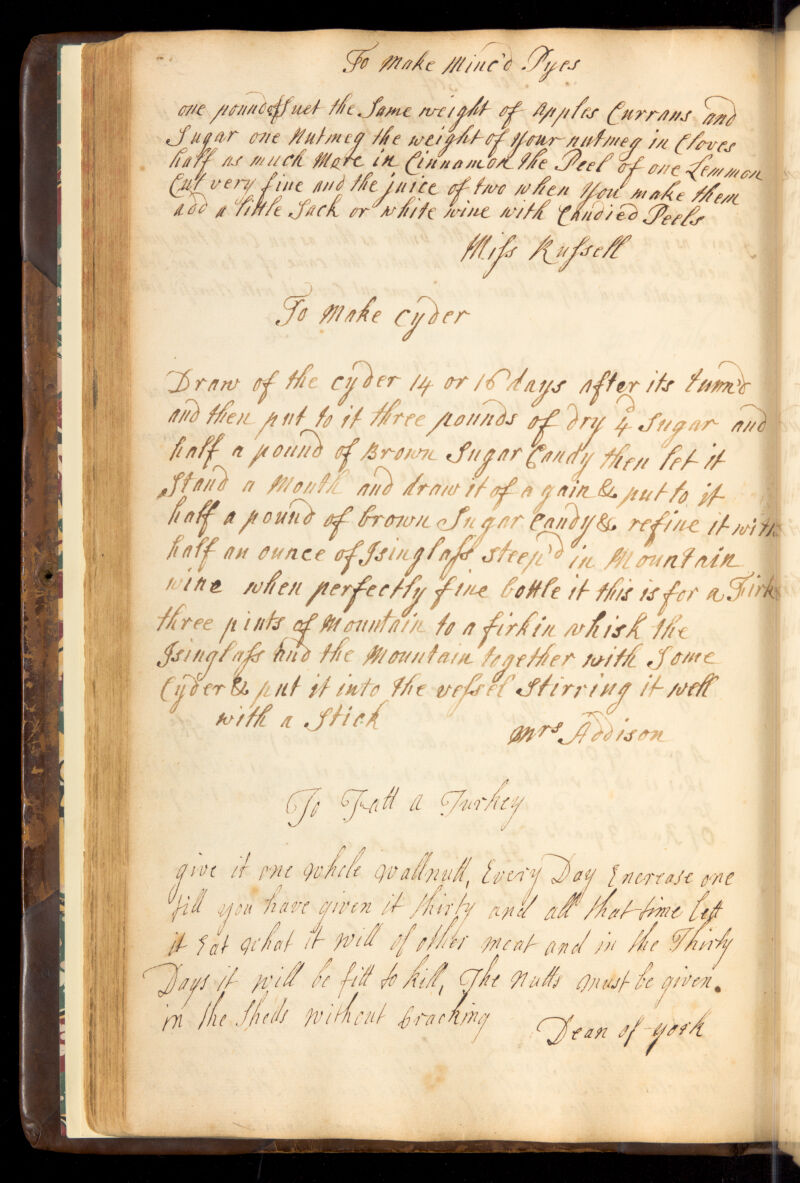 To Make Minc'd Pyes
one pound of Suet the Same weight of Apples Currans and
Sugar one Nutmeg the weight of your nutmeg in Cloves
half as much More in Cinnamon the Peel of one Lemmon
Cut very fine and the juice of two when you make them
add a little Sack or white wine with Candied Peels
Miss Russell
To Make Cyder
Draw of the Cyder 14 or 16 days after its tunn'd
and then put to it three pounds of dry 4d Sugar and
half a pound of Brown Sugar Candy then let it
Stand a Month and draw it of a gain & put to it
half a pound of brown Sugar Candy & refine it with
half an ounce of Isinglass steep'd in Mountain
wine when perfectly fine bottle it this is for a Firk
three pints of Mountain to a firkin whisk the
Isinglass and the Mountain together with Some
Cyder & put it into the vessel Stirring it well
with a Stick
Mrs Addison
To Fatt a Turkey
give it one whole wallnutt, Every Day Encrease one
till you have given it thirty and all that time lett
it Eat what it will of other meat and in the Thirty
Days it will be fitt to kill, The Nutts must be given.
in the Sheds without Cracking
Dean of york